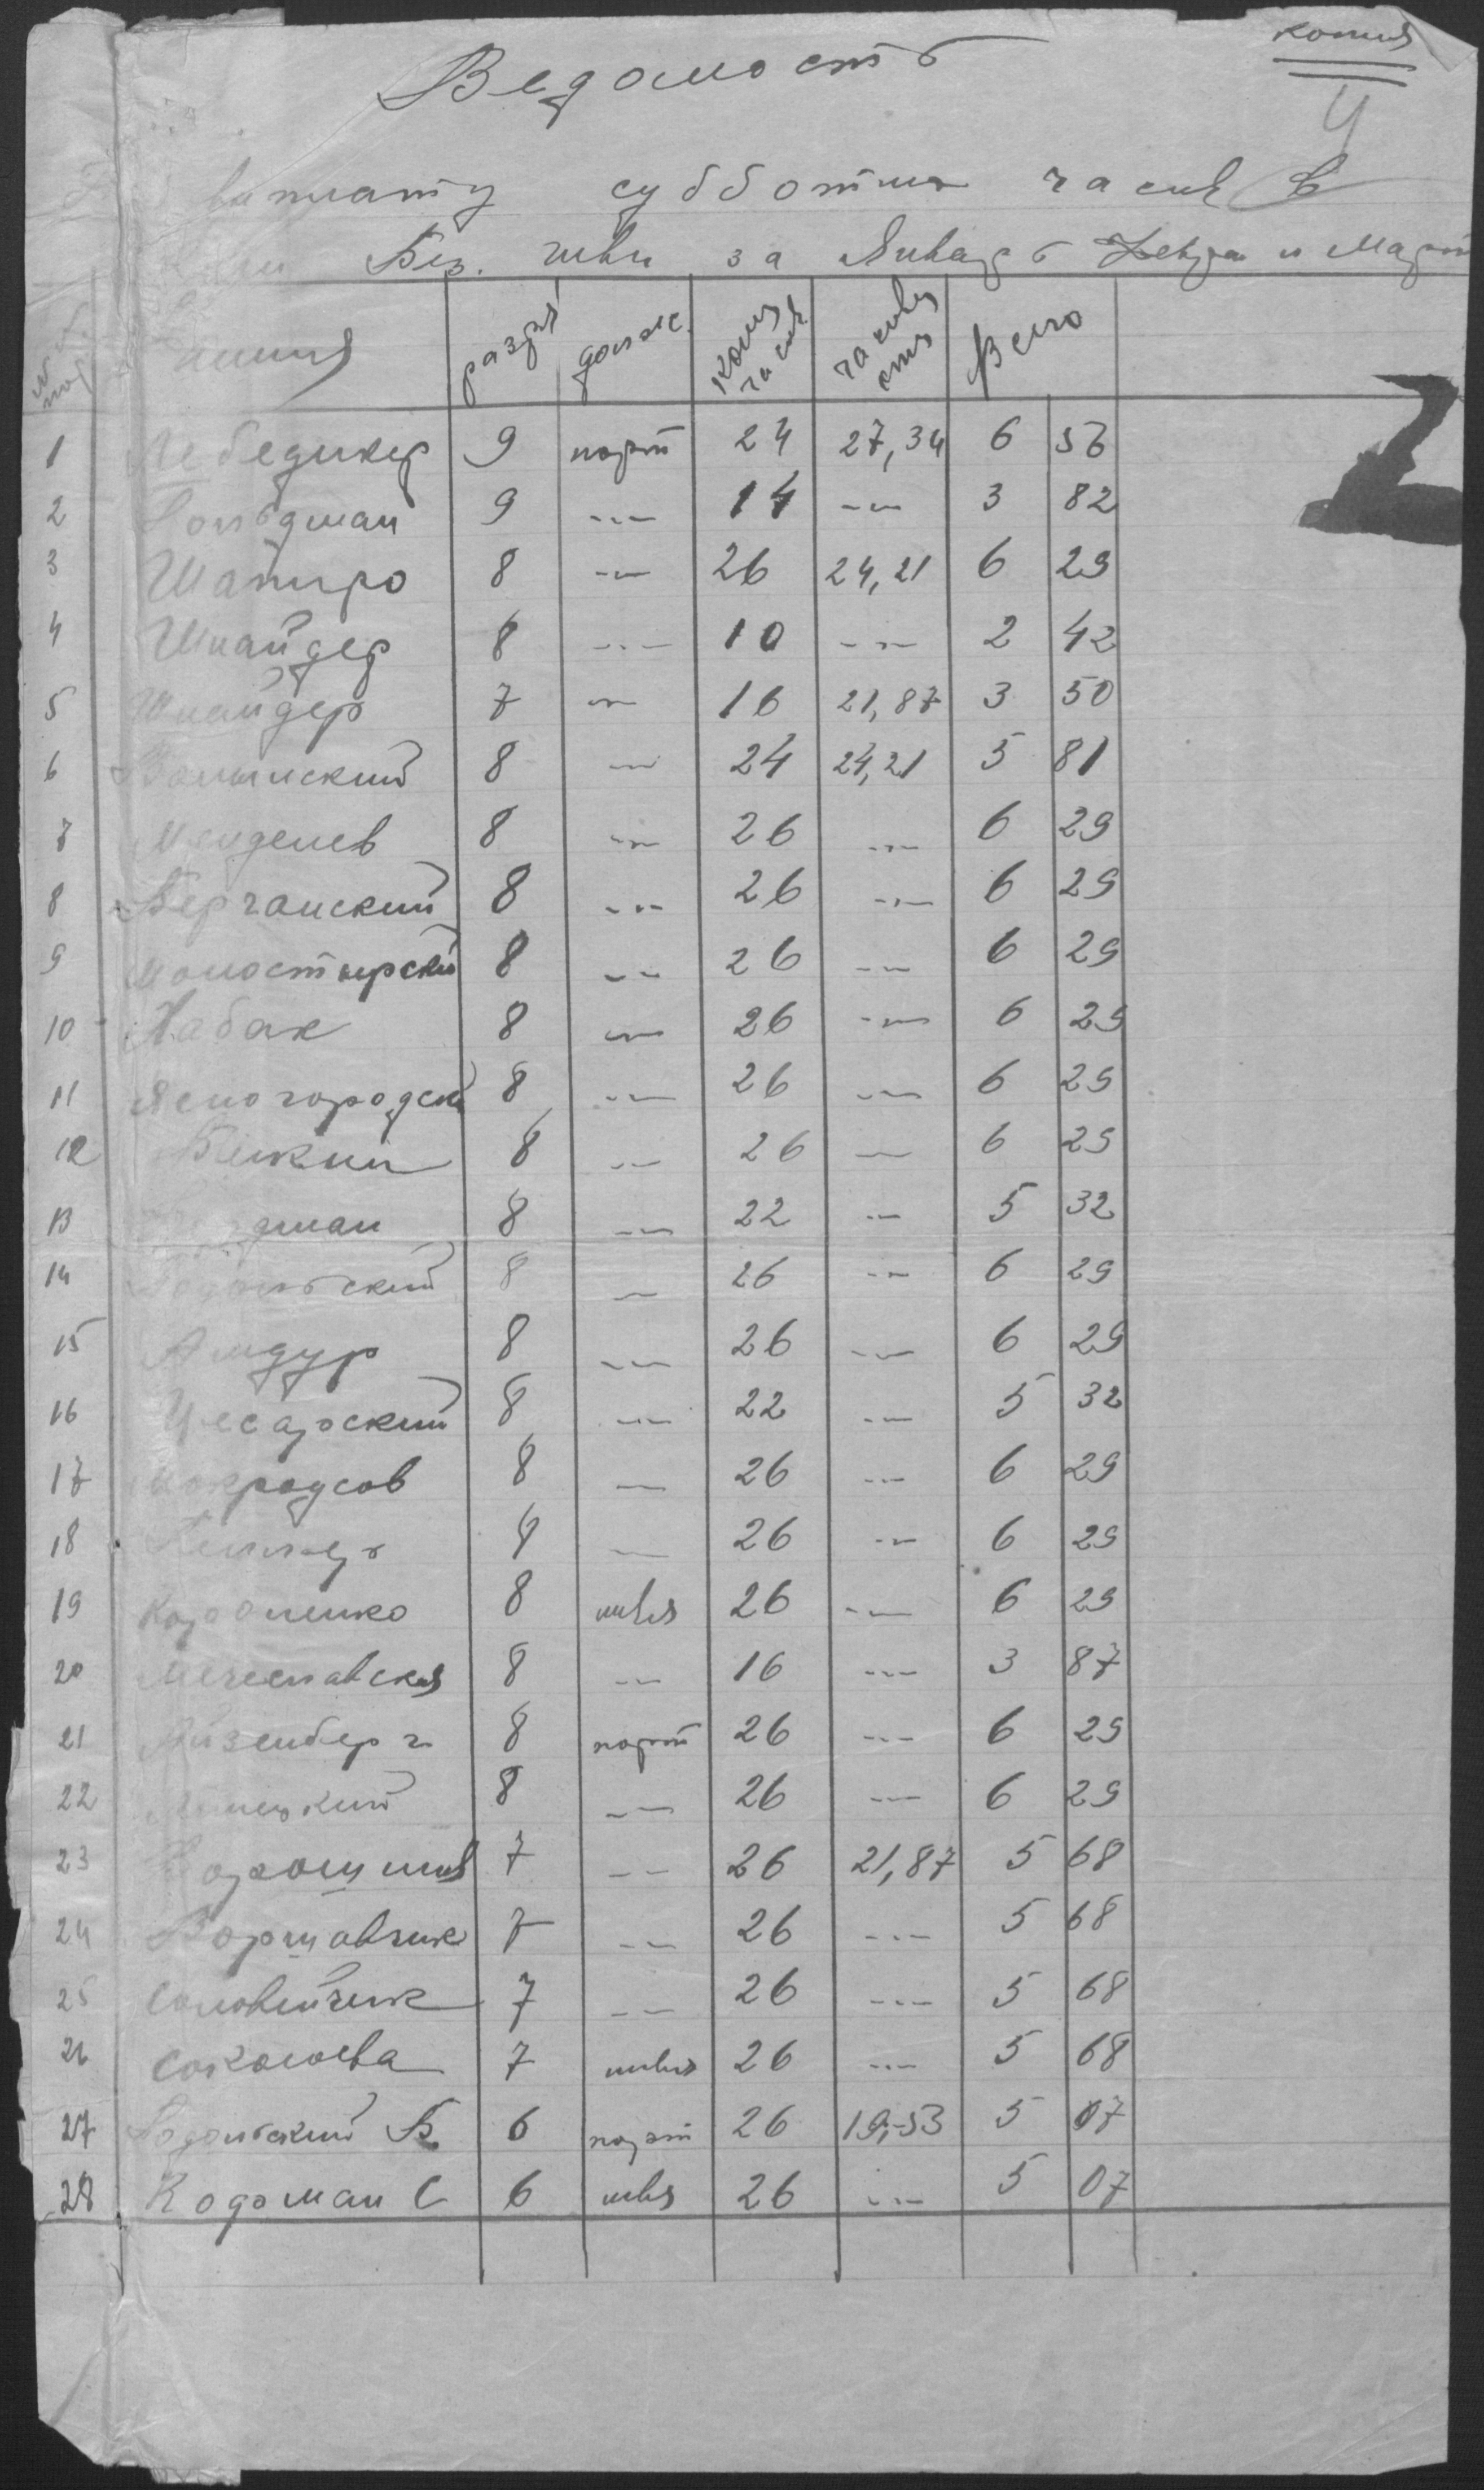 копия
4
Ведомость
выплату субботних часов в
Без. швеи за Январь Февра и Март
разря долже. Колич часов часовая ста Всего
1 Лебедикер 9 порт 24 27,34 6 56
2 Гольдман 9 -·- 14 -·- 3 82
3 Шапиро 8 -·- 26 24,21 6 29
4 Шнайдер 8 -·- 10 -·- 2 42
5 Шнайдер 7 -·- 16 21,87 3 50
6 Волынский 8 -·- 24 24,21 5 81
7 Менделев 8 -·- 26 -·- 6 29
8 Берчанский 8 -·- 26 -·- 6 29
9 Моностырски 8 -·- 26 -·- 6 29
10 Хабак 8 -·- 26 -·- 6 29
11 Ясногородск 8 -·- 26 -·- 6 29
12 Белкин 8 -·- 26 -·- 6 29
13 дман 8 -·- 22 -·- 5 32
14 Подольский 8 -·- 26 -·- 6 29
15 Амдур 8 -·- 26 -·- 6 29
16 Цесарский 8 -·- 22 -·- 5 32
17 Мокроусов 8 -·- 26 -·- 6 29
18 8 -·- 26 -·- 6 29
19 Короленко 8 швея 26 -·- 6 29
20 Мечеславская 8 -·- 16 -·- 3 87
21 Айзенберг 8 порт 26 -·- 6 29
22 Липецкий 8 -·- 26 -·- 6 29
23 7 -·- 26 21,87 5 68
24 Воршавчик 7 -·- 26 -·- 5 68
25 Соловейчик 7 -·- 26 -·- 5 68
26 Соколова 7 швея 26 -·- 5 68
27 Подольский Б 6 порт 26 19,53 5 07
28 Кодоман С 6 швея 26 -·- 5 07